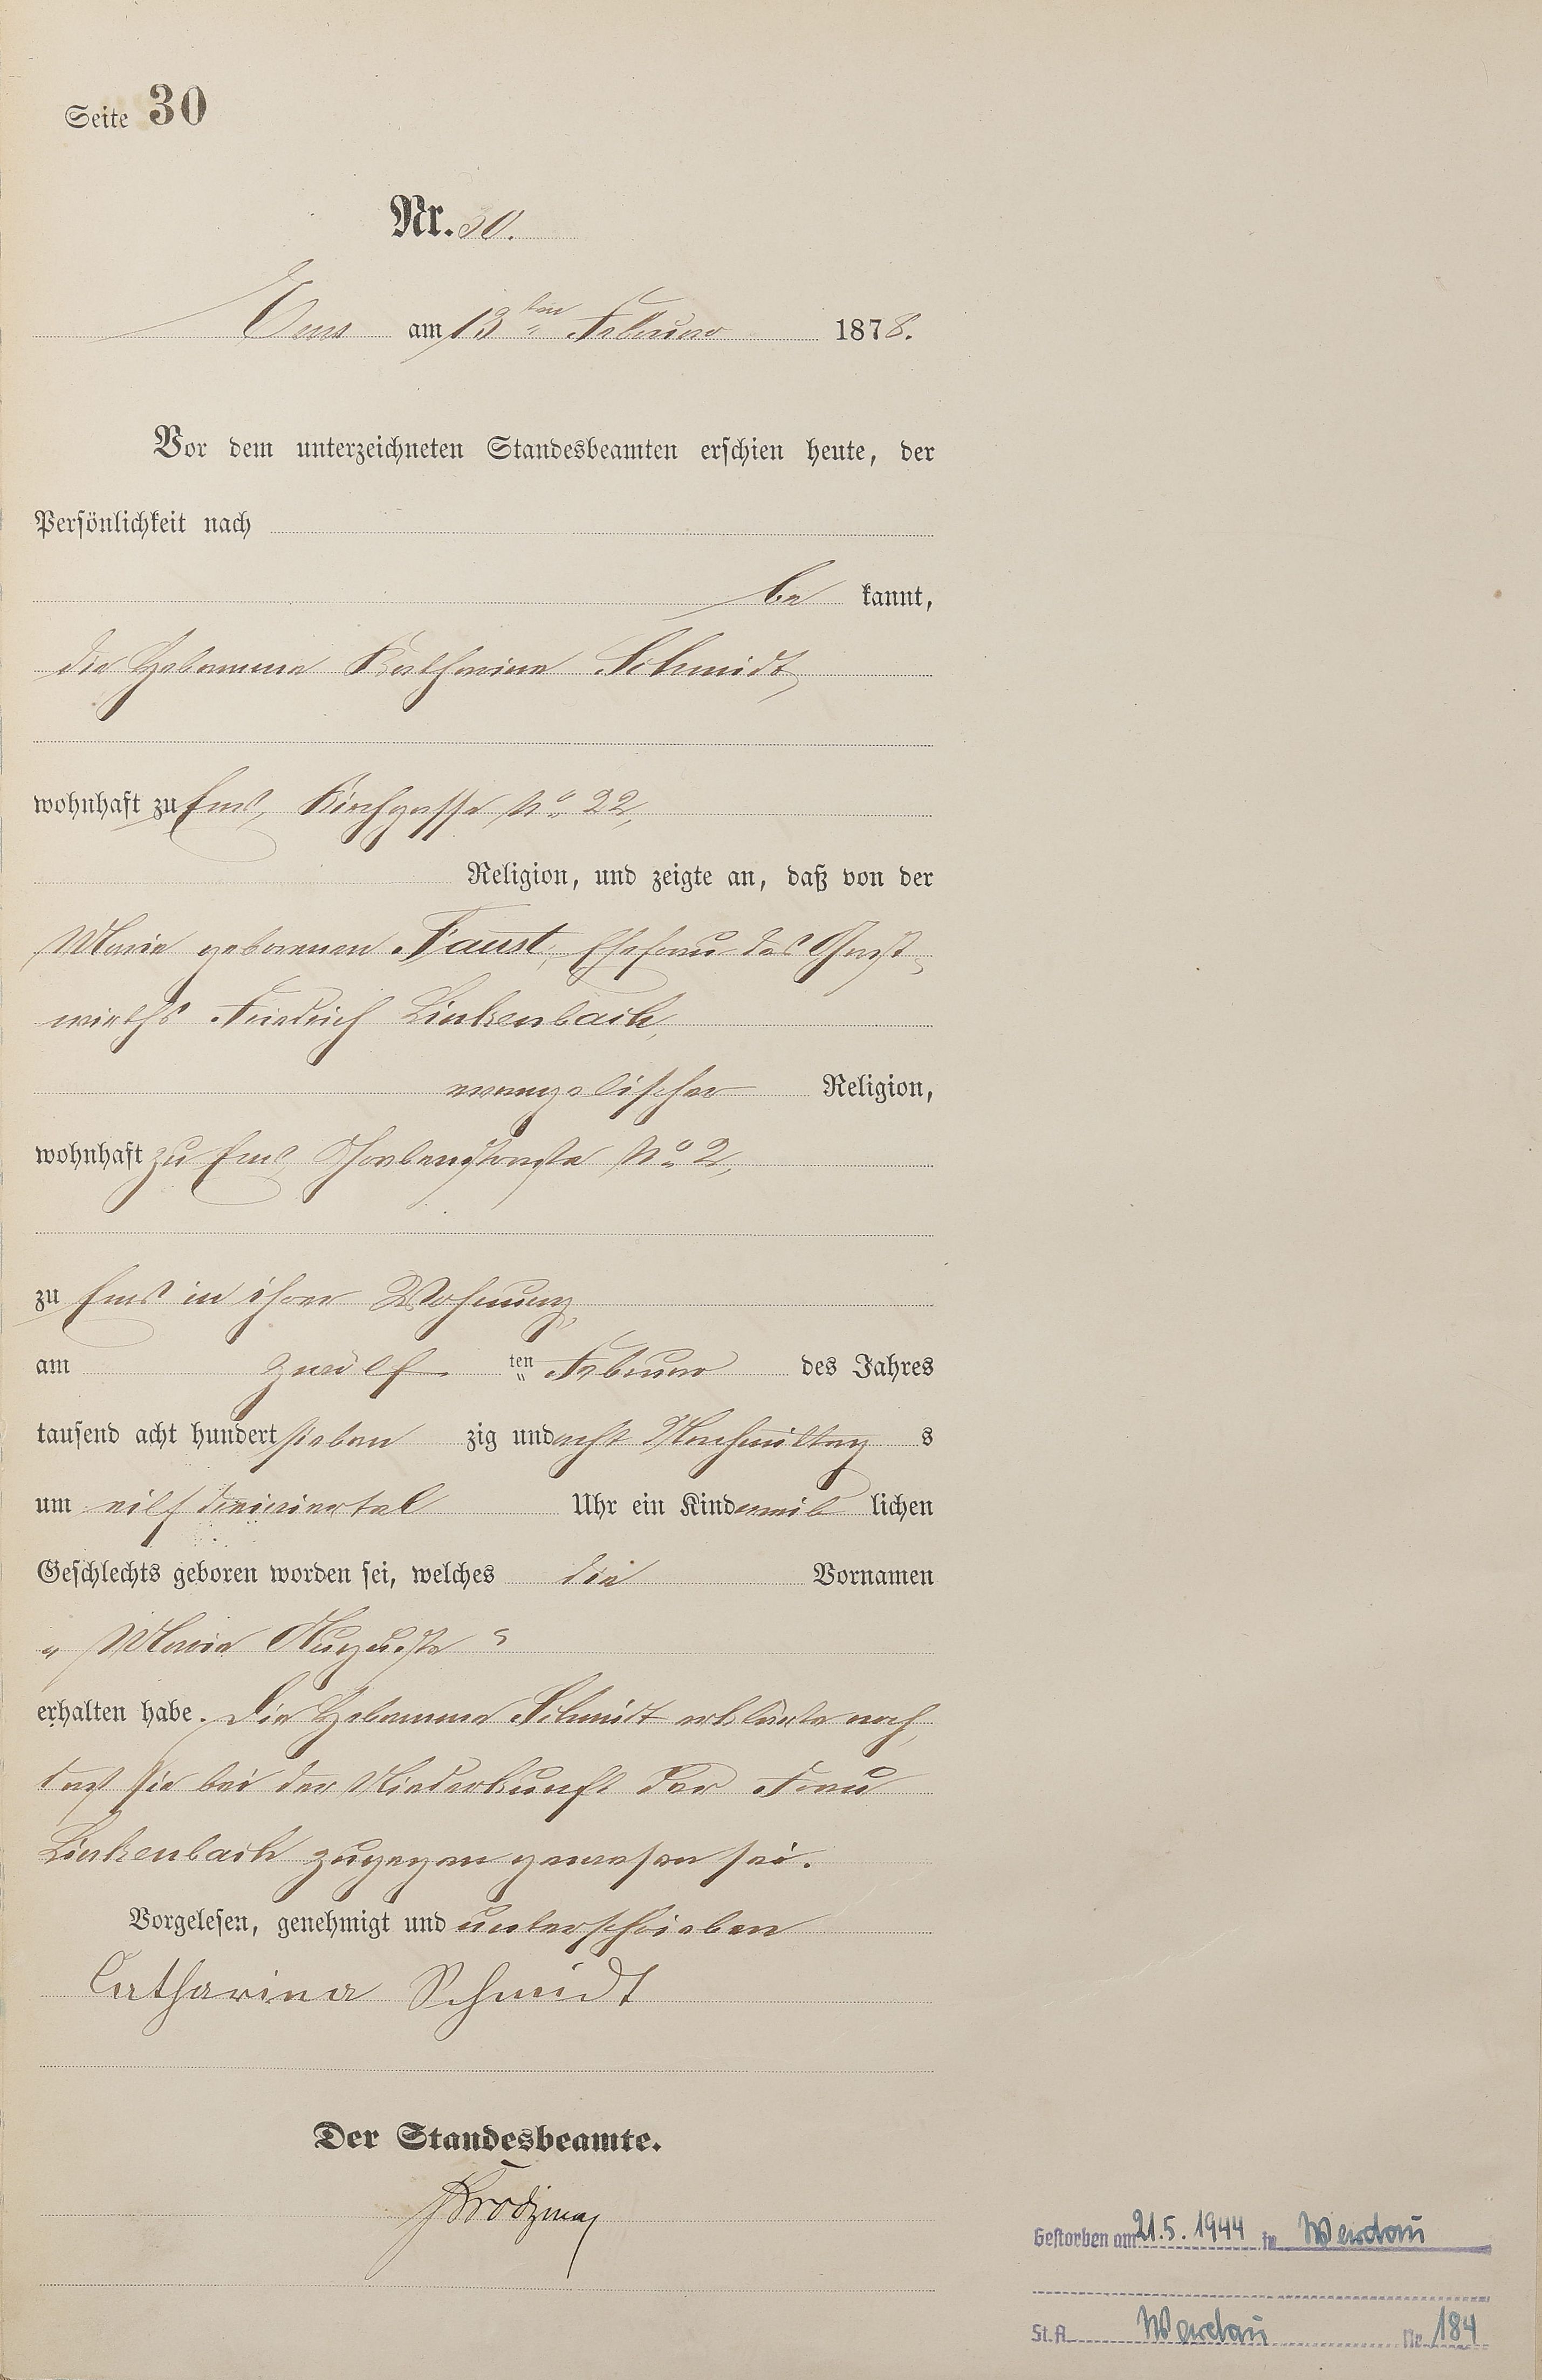 Seite 30
Nr. 30.
Ems am 13ten Februar 1878.
Vor dem unterzeichneten Standesbeamten erschien heute, der
Persönlichkeit nach
be kannt,
die Hebamme Katharina Schmidt,
wohnhaft zu Ems, Kirchgasse No 22,
Religion, und zeigte an, daß von der
Marie geborenen Faust, Ehefrau des Gast-
wirths Friedrich Linkenbach,
evangelischer Religion,
wohnhaft zu Ems, Grabenstraße No 2,
zu Ems in ihrer Wohnung,
am zwölf ten Februar des Jahres
tausend acht hundert sieben zig und acht Nachmittag s
um eilf dreiviertel Uhr ein Kind weib lichen
Geschlechts geboren worden sei, welches die Vornamen
„Maria Auguste“
erhalten habe. Die Hebamme Schmidt erklärte noch,
daß sie bei der Niederkunft der Frau
Linkenbach zugegen gewesen sei.
Vorgelesen, genehmigt und unterschrieben
Catharina Schmidt
Der Standesbeamte.
Gestorben am 21.5.1944 in Werdau
St.A. Werdau Nr. 184